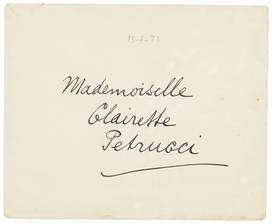 15-8-23
Mademoiselle
Clairette
Petrucci